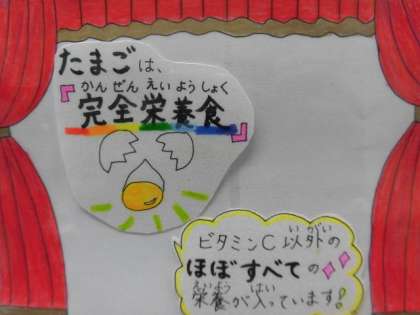 たまごは、
かんぜんえいようしょく
『完全栄養食』
いがい
ビタミンC以外の
ほぼすべての
えいよう はい
栄養が入っています!